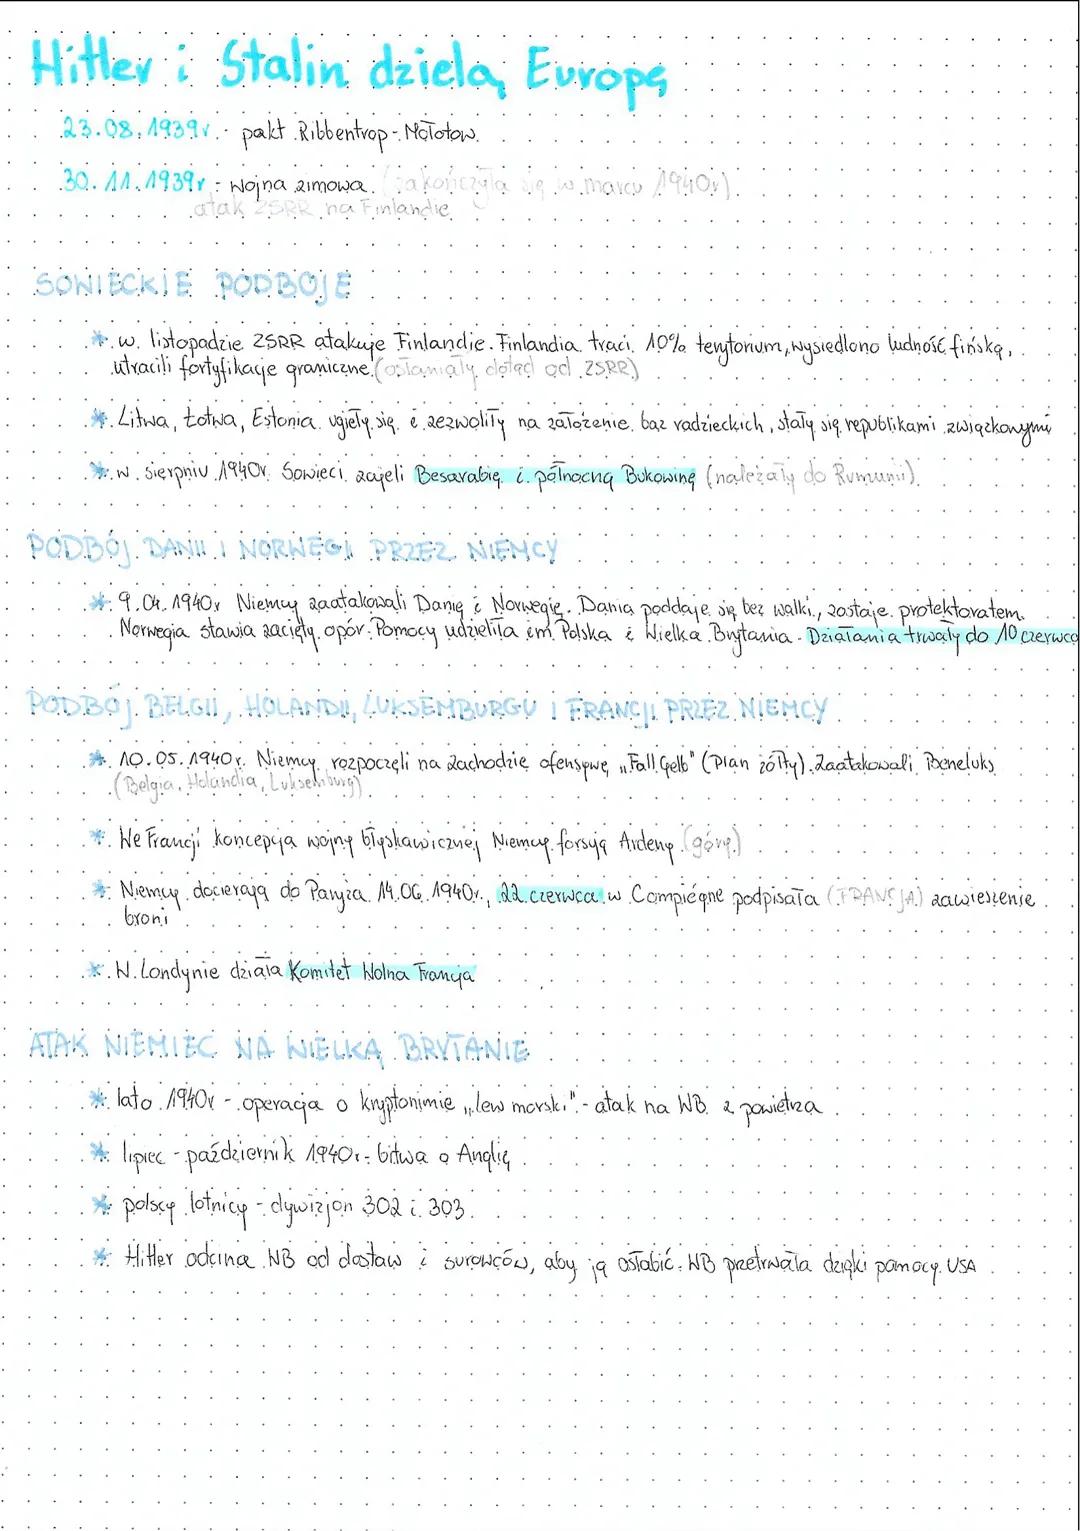 Hitler i Stalin dzielą Europę
23.08.1939r. - pakt Ribbentrop-Mołotow.
30.11.1939r - wojna zimowa. (zakończyła się w marcu 1940r)
atak ZSRR na Finlandie
SOWIECKIE PODBOJE
* w listopadzie ZSRR atakuje Finlandie. Finlandia traci 10% terytorium, wysiedlono ludność fińską,
utracili fortyfikacje graniczne (osłaniały dotąd od ZSRR)
* Litwa, Łotwa, Estonia ugięły się i zezwoliły na założenie baz radzieckich, stały się republikami związkowymi
* w sierpniu 1940r. Sowieci zajeli Besarabię i północną Bukowinę (należały do Rumunii)
PODBÓJ DANII I NORWEGII PRZEZ NIEMCY
* 9.04.1940r Niemcy zaatakowali Danię i Norwegię. Dania poddaje się bez walki, zostaje protektoratem.
Norwegia stawia zacięty opór. Pomocy udzieliła im Polska i Wielka Brytania. Działania trwały do 10 czerwca
PODBÓJ BELGII, HOLANDII, LUKSEMBURGU I FRANCJI PRZEZ NIEMCY
* 10.05.1940r. Niemcy rozpoczęli na zachodzie ofensywę „Fall Gelb" (Plan żółty). Zaatakowali Beneluks
(Belgia, Holandia, Luksemburg)
* We Francji koncepcja wojny błyskawicznej Niemcy forsują Ardeny (góry)
* Niemcy docierają do Paryża 14.06.1940r., 22 czerwca w Compiégne podpisała (FRANCJA) zawieszenie
broni
* W Londynie działa Komitet Wolna Francja
ATAK NIEMIEC NA WIELKĄ BRYTANIE
* lato 1940r - operacja o kryptonimie „lew morski" - atak na WB z powietrza
* lipiec - październik 1940r - bitwa o Anglię
* polscy lotnicy - dywizjon 302 i 303
* Hitler odcina WB od dostaw i surowców, aby ją osłabić. WB przetrwała dzięki pomocy USA